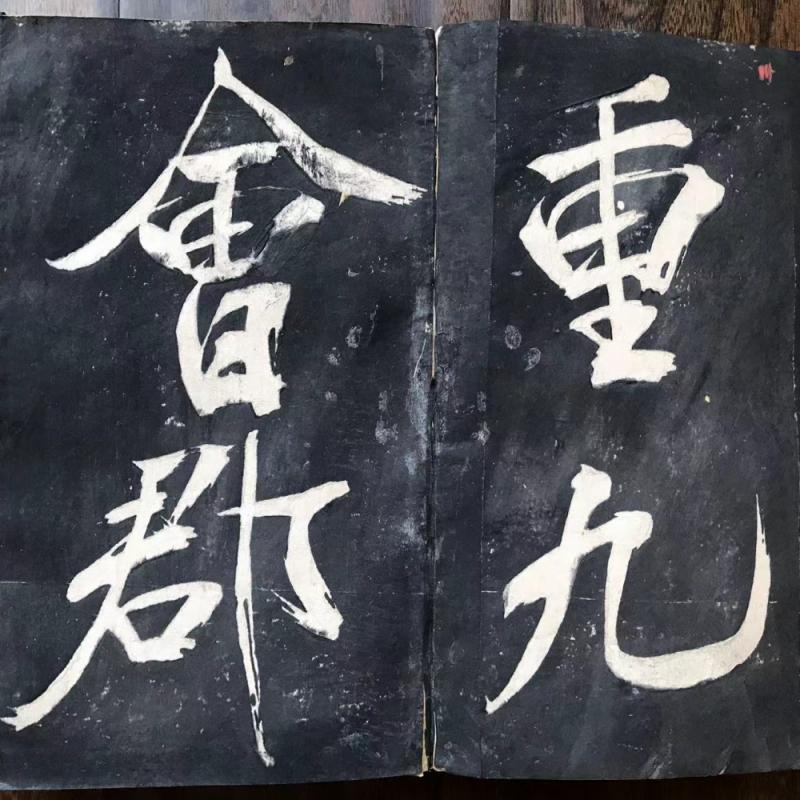 重九
會郡